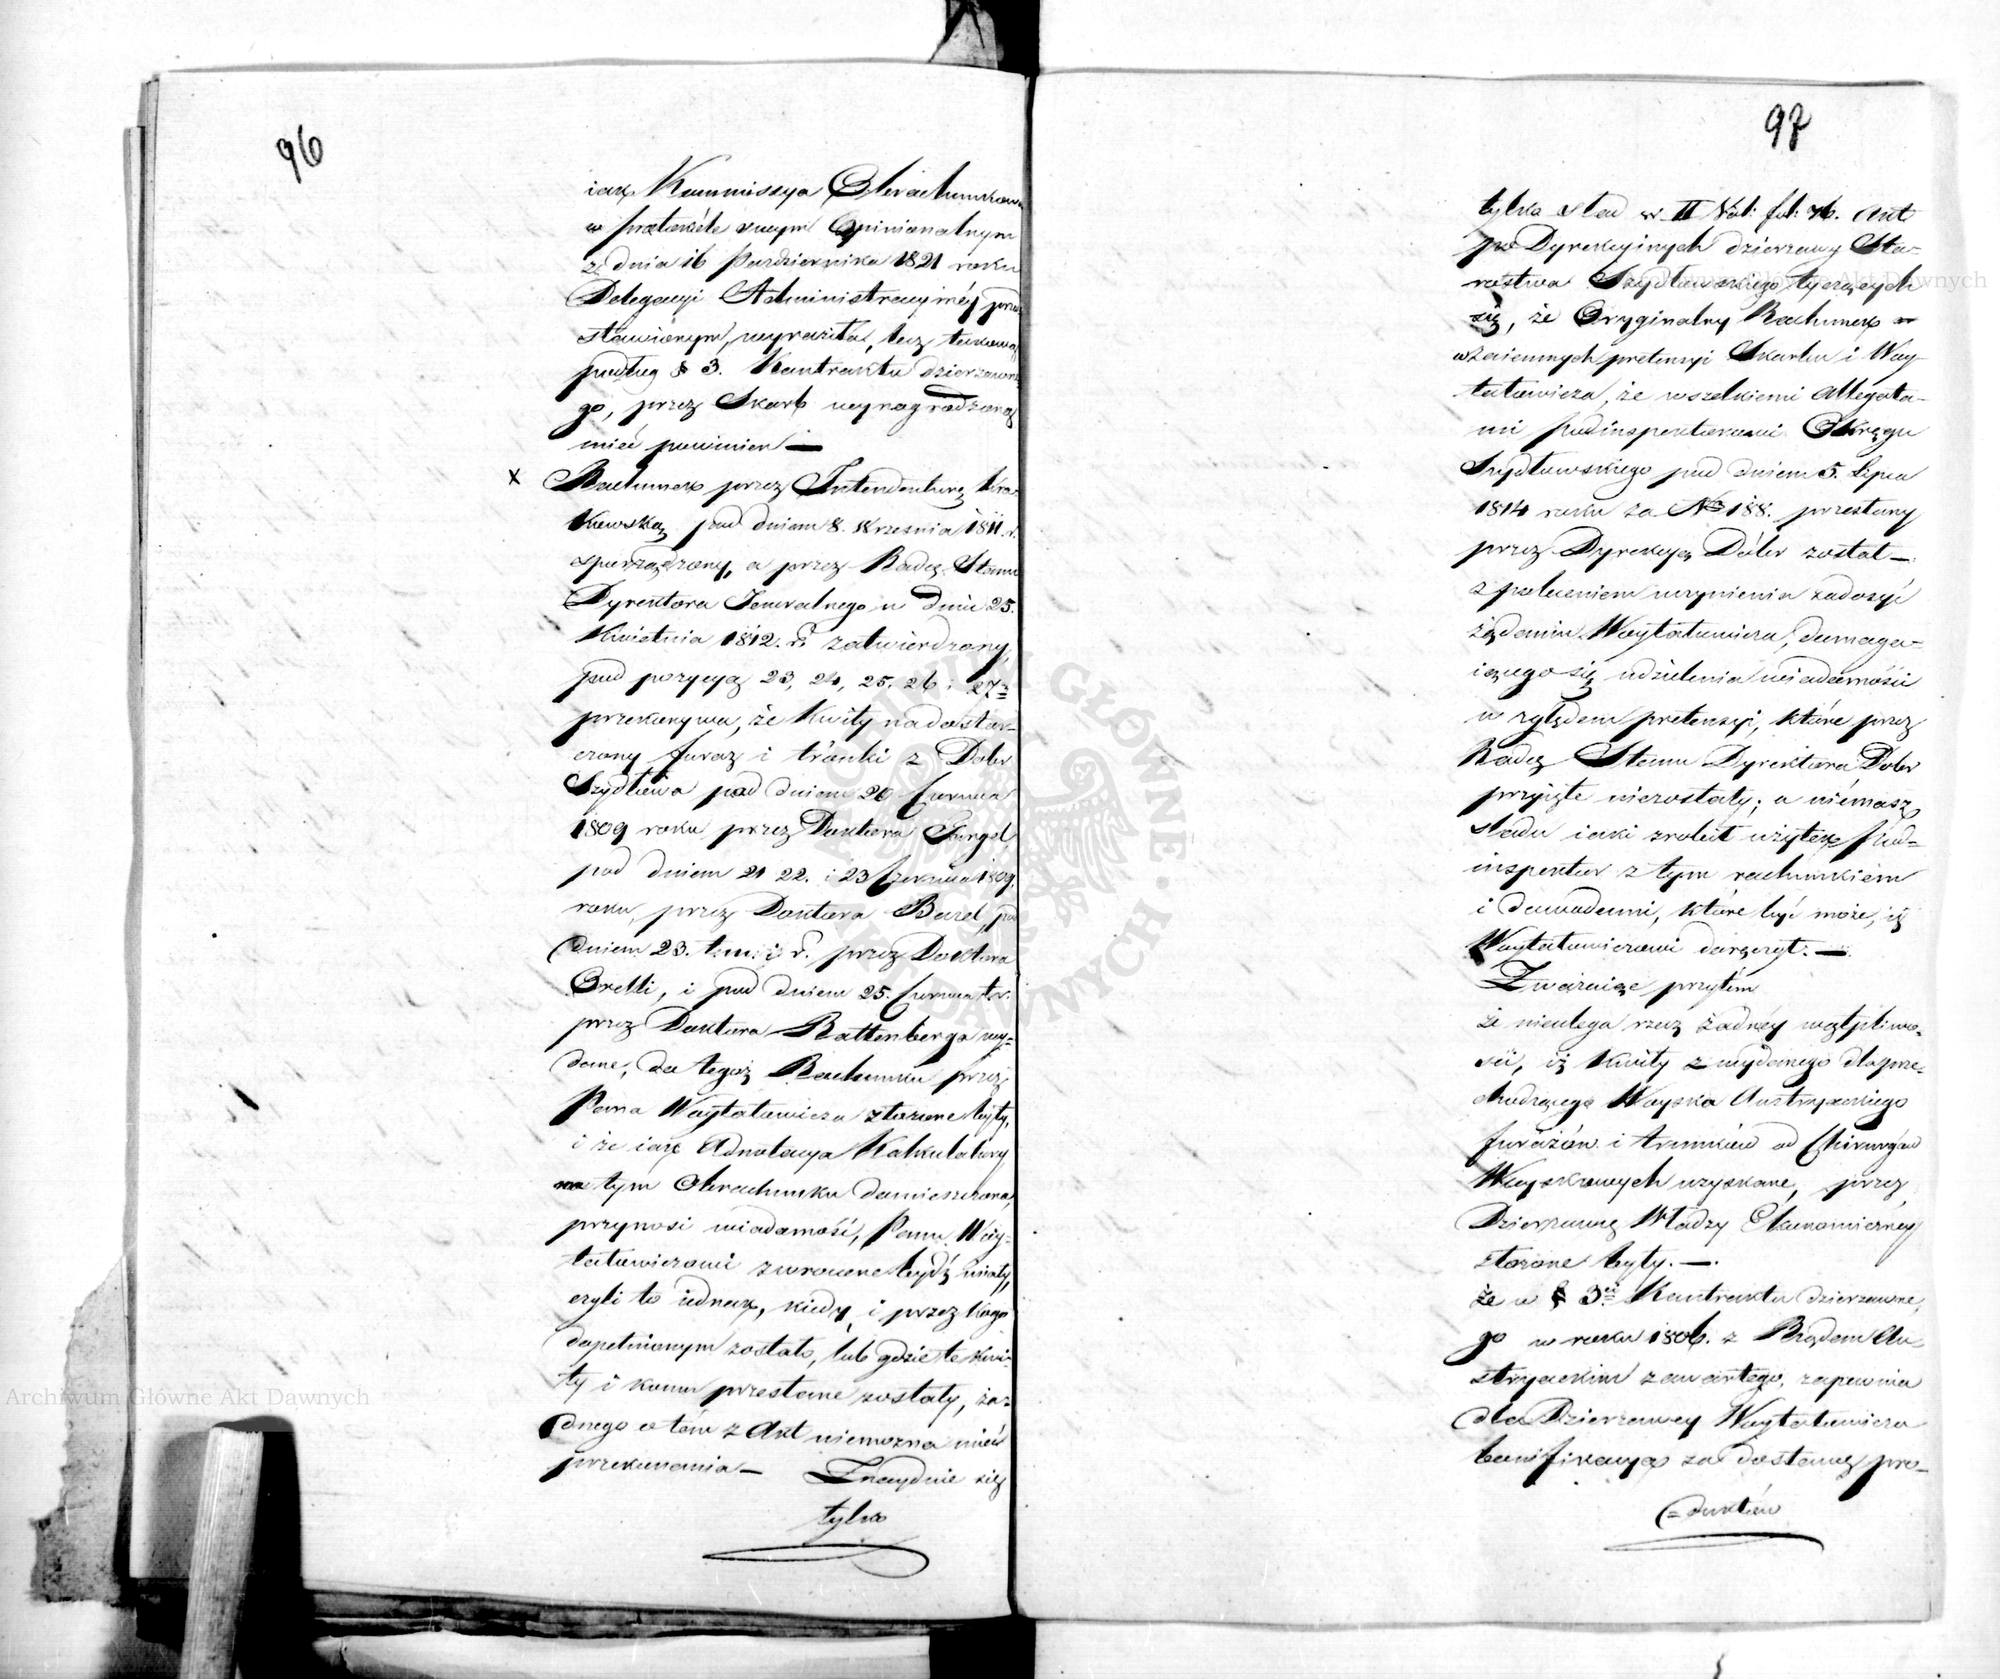 96
iak Kommissya Obrachunkowa
w protokóle swym Opinionalnym
z dnia 16 Października 1821 roku
Delegacyi Administracyinéy przed
stawionym, wyraziła, lecz takową
podług § 3. Kontraktu dzierzawne
go, przez Skarb wynagrodzoną
mieć powinien —
x Rachunek przez Intendenturę Kra-
kowską pod dniem 8. Września 1811. r.
sporządzony, a przez Radcę Stanu
Dyrektora Jeneralnego w dniu 25.
Kwietnia 1812. r. zatwierdzony,
pod pozycyą 23, 24, 25. 26 i 27
przekonywa, że Kwity na dostar-
czony furaz i trónki z Dóbr
Szydłowa pod dniem 20 Czerwca
1809 roku przez Doktora Jungel
pod dniem 21 22. i 23 Czerwca 1809.
roku, przez Doktora Bazel, pod
dniem 23. t. m. i r. przez Doktora
Orelli, i pod dniem 25. Czerwca t. r.
przez Doktora Battenberga wy-
dane, do tegoż Rachunku przez
Pana Woytatowicza złożone były,
i że iak Adnotacya Kalkulatury
na tym Obrachunku domieszczona,
przynosi wiadomość, Panu Woy-
tatowiczowi zwrócone bydź miały,
czyli to iednak, kiedy, i przez kogo
dopełnionym zostało, lub gdzie te kwi-
ty i komu przesłane zostały, ża-
dnego o tém z Akt niemożna mieć
przekonania — Znayduie się
tylko
97
tylko ślad w II Vol: fol: 76. Akt
po Dyrekcyinych dzierzawy Sta-
rostwa Szydłowskiego tyczących
się, że Oryginalny Rachunek
wzaiemnych pretensyi Skarbu i Woy-
tatowicza, ze wszelkiemi Allegata-
mi Podinspektorowi Okręgu
Szydłowskiego pod dniem 5. Lipca
1814 roku za No 188. przesłany
przez Dyrekcyą Dóbr został —
z poleceniem uczynienia zadosyć
żądaniu Woytatowicza, domaga-
iącego się udzielenia wiadomości
względem pretensyi, które przez
Radcę Stanu Dyrektora Dóbr
przyięte niezostały; a niémasz
śladu iaki zrobił użytek Pod-
inspektor z tym rachunkiem
i dowodami, które być może, iż
Woytatowiczowi doręczył. —
Zważaiąc przytém
że nieulega rzecz żadnéy wątpliwo-
ści, iż kwity z wydanego dla prze-
chodzącego Woyska Austryackiego
furażów i trunków od Chirurgów
Woyskowych uzyskane, przez
Dzierzawcę Władzy Ekonomicznéy
złożone były. —
że w § 3ci Kontraktu dzierzawne
go w roku 1806. z Rządem Au-
stryackim zawartego, zapewnia
dla Dzierzawcy Woytatowicza
bonifikacyą za dostawę pro-
duktów
Archiwum Główne Akt Dawnych
Archiwum Główne Akt Dawnych
ARCHIWUM GŁÓWNE · AKT DAWNYCH ·